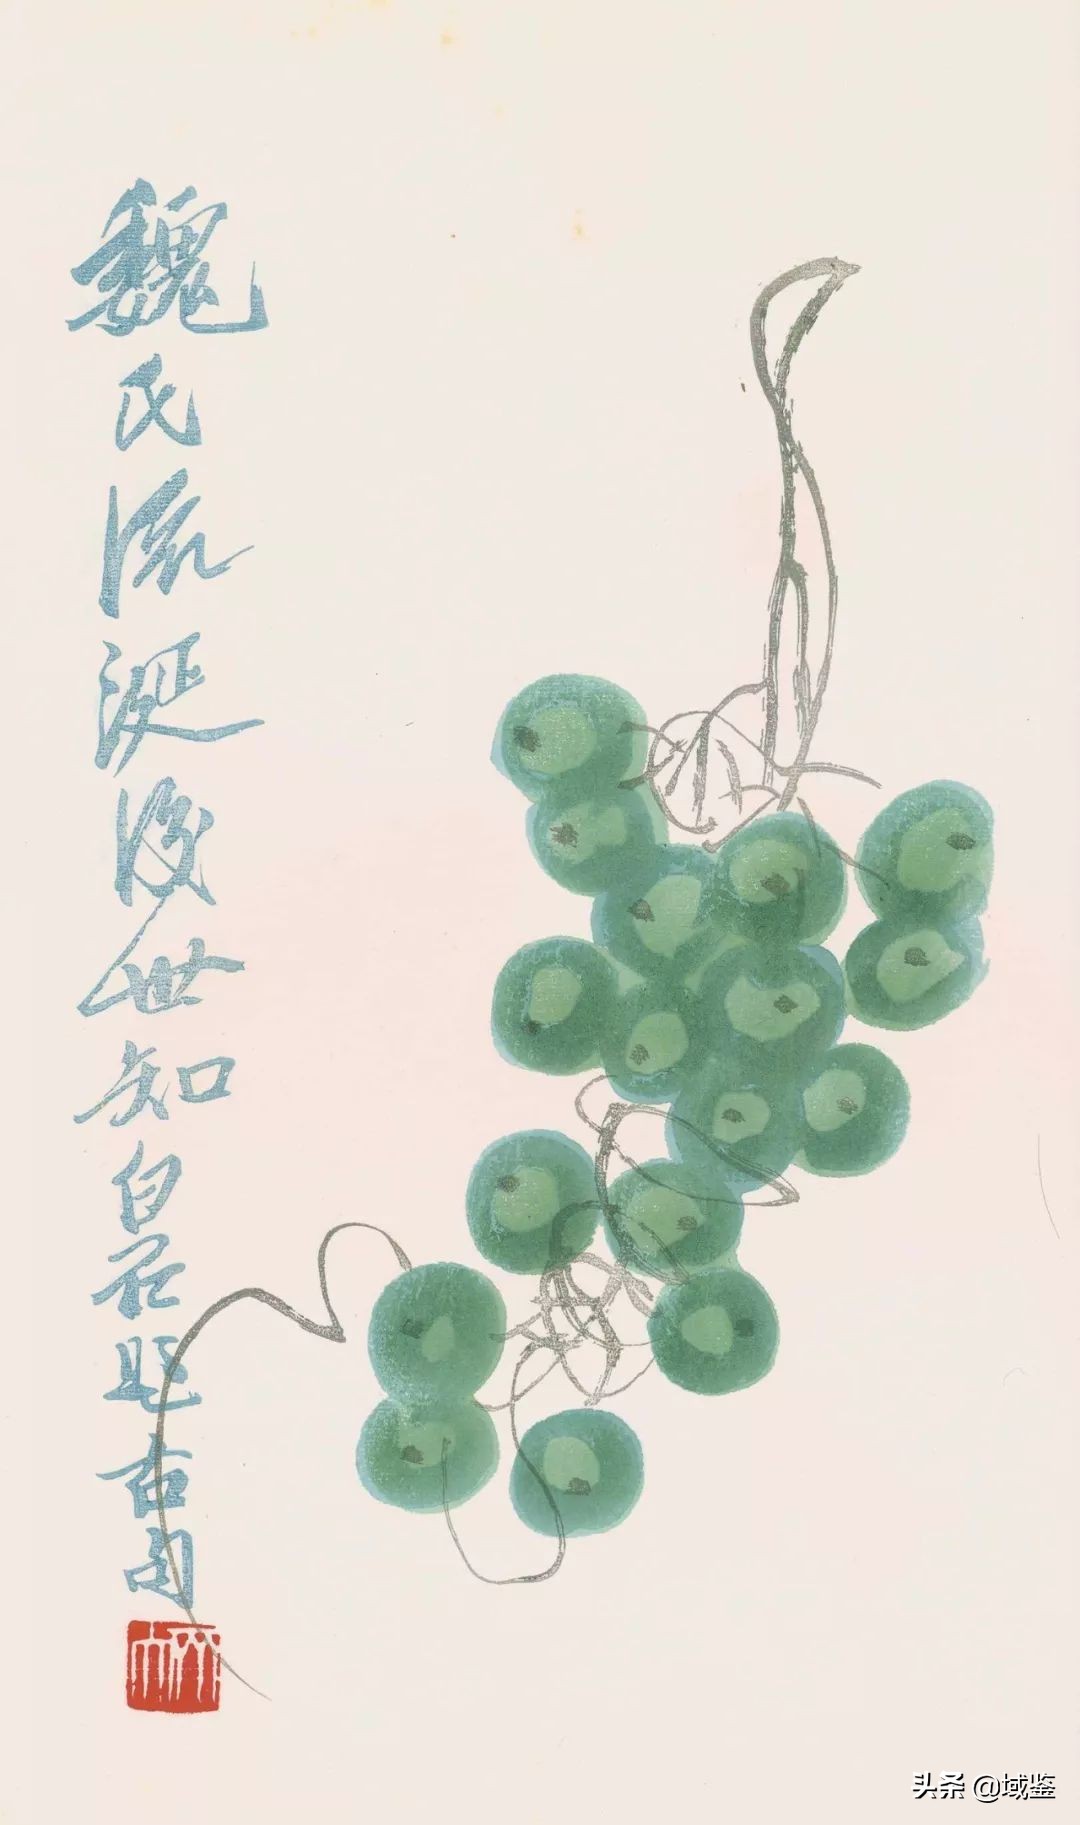 魏氏流涎後世知白石题古句
头条 @域鉴